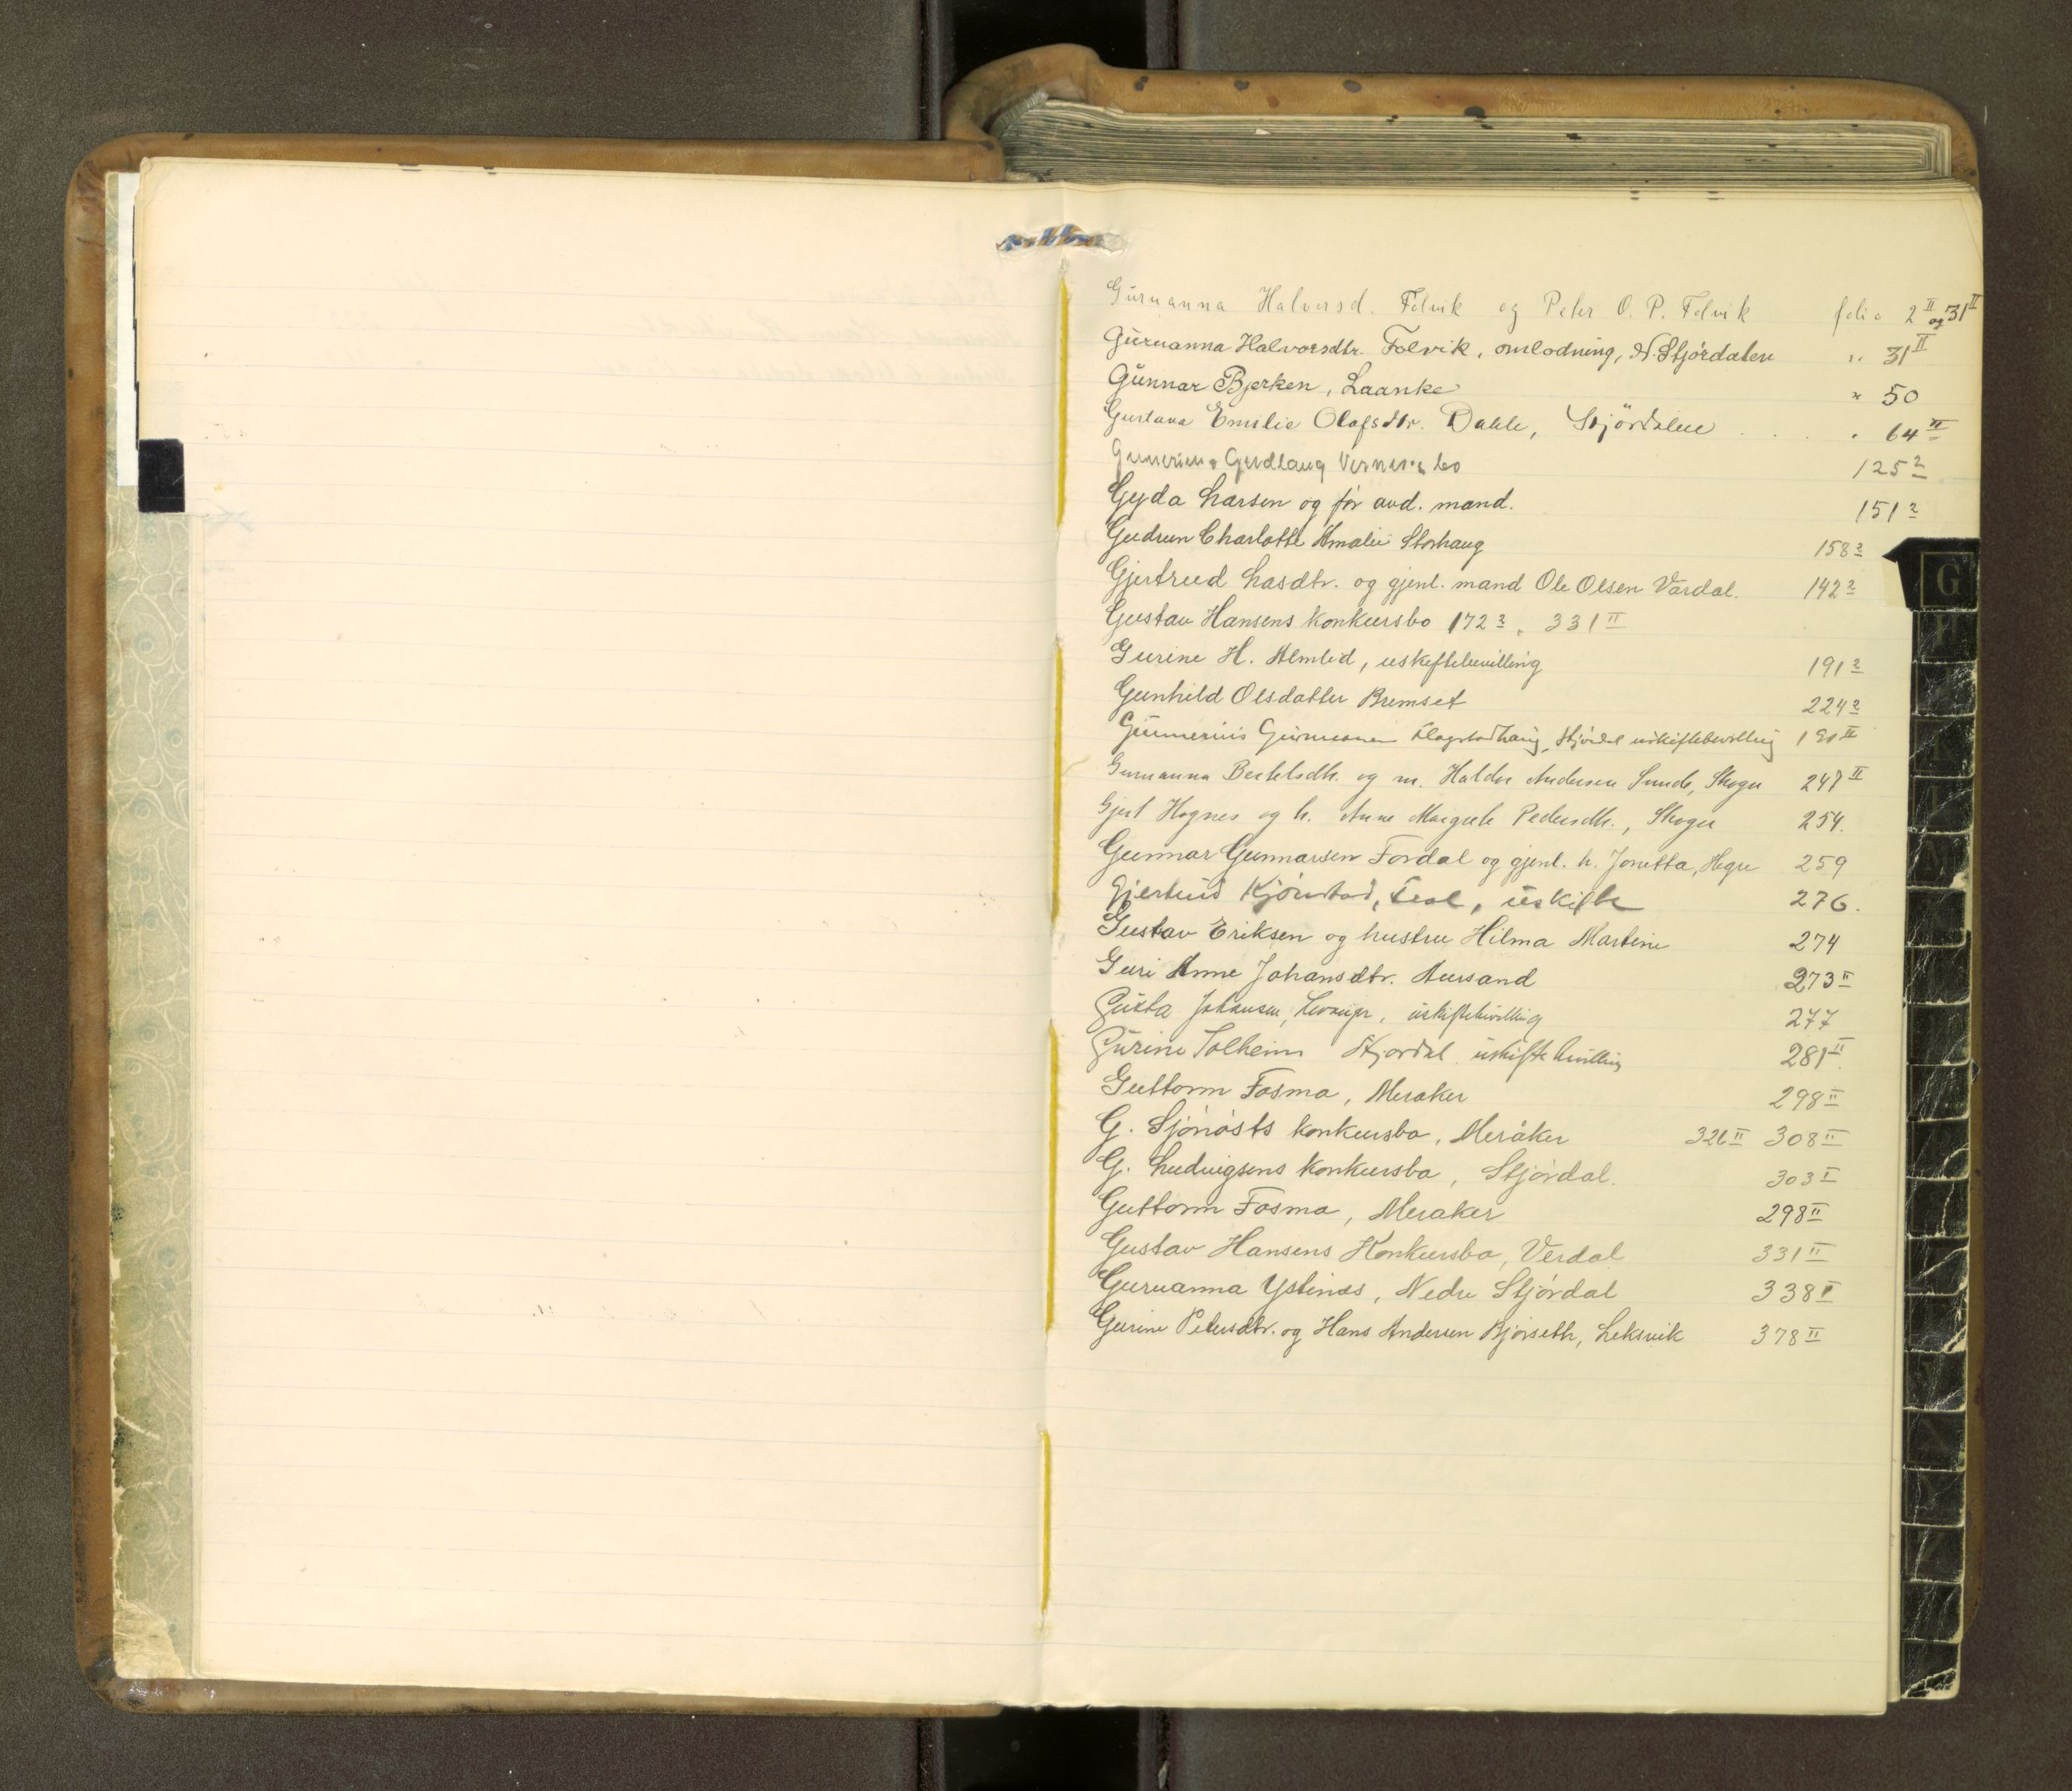 Guruanna Halvorsd. Folvik og Peter O. P. Folvik folio 2 II og 31 II
Guruanna Halvorsdtr. Folvik, omlodning, N. Stjørdalen " 31 II
Gunnar Bjerken, Laanke " 50
Gustava Emilie Olafsdtr. Dahle, Stjördalen . . . . 64 II
Gudlaug bo 125 2
Gyda Larsen og før avd. mand. 151 2
Gudrun Charlotte Amalie Storhaug 158 2
G
Gjertrud Lasdtr. og gjenl. mand Ole Olsen Vårdal. 142 2
Gustav Hansens konkursbo 172 2, 331 II
Gurine H. Almlid, uskiftebevilling 191 2
Gunhild Olsdatter Bremset 224 2
Gunnerius Stjørdal uskiftebevilling 191 II
Guruanna Bertelsdtr. og m. Haldor Andersen Sunde, Skogn 247 II
Gjert Hognes og h. Anne Margrete Pedersdtr., Skogn 254.
Gunnar Gunnarsen Fordal og gjenl. h. Jonetta, Hegre 259
Gjertrud Kjønstad, uskifte 276.
Gustav Eriksen og hustru Hilma Martine 274
Guri Anne Johansdtr. Aursand 273 II
Gusta Johansen, Levanger, uskiftebevilling 277
Gurine Solheim Stjørdal uskiftebevilling 281 II.
Guttorm Fosma, Meraker 298 II
G. Sjönøsts konkursbo, Meråker 326 II 308 II
G. Ludvigsens konkursbo, Stjørdal. 303 I
Guttorm Fosma, Meraker 298 II
Gustav Hansens Konkursbo, Verdal 331 II
Guruanna Ystines, Nedre Stjørdal 338 II
Gurine Petersdtr. og Hans Andersen Bjørseth, Leksvik 378 II